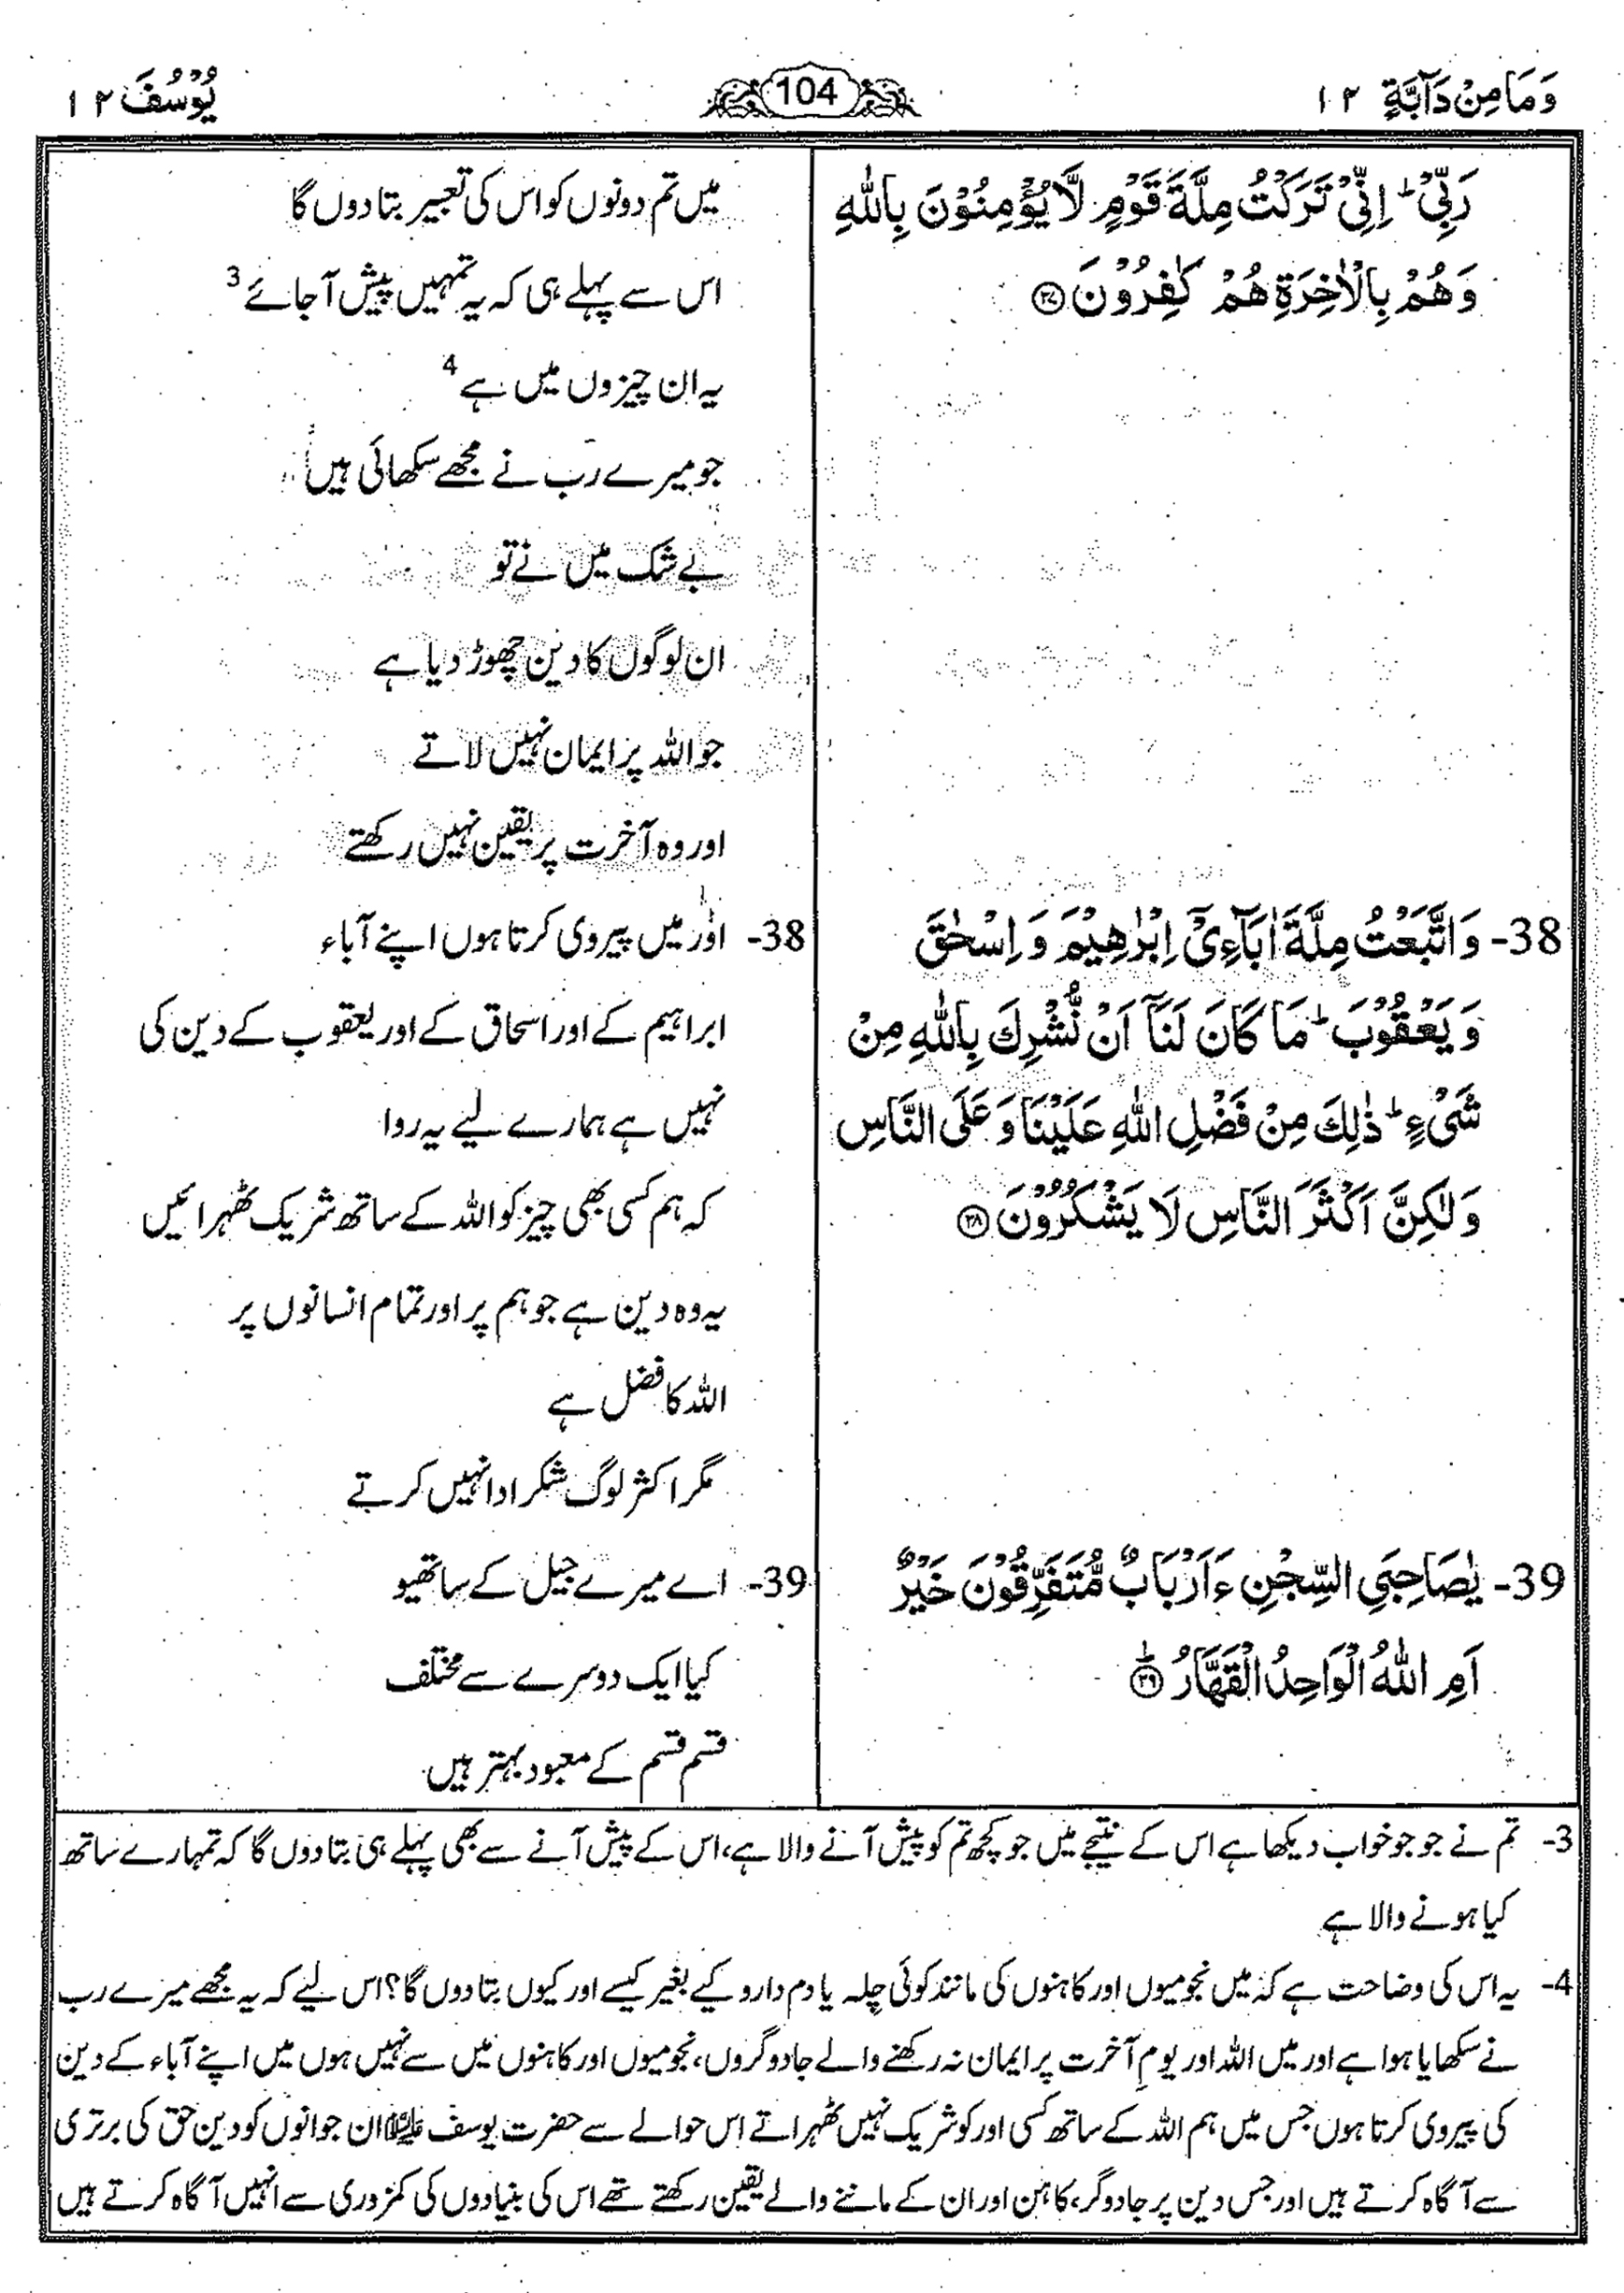 وَمَا مِنْ دَآبَّةٍ ١٢
104
يُوْسُفَ ١٢
رَبِّیْ ؕ اِنِّیْ تَرَكْتُ مِلَّةَ قَوْمٍ لَّا یُؤْمِنُوْنَ بِاللّٰهِ
وَهُمْ بِالْاٰخِرَةِ هُمْ كٰفِرُوْنَ ۝۳۷
38- وَاتَّبَعْتُ مِلَّةَ اٰبَآءِیْۤ اِبْرٰهِیْمَ وَ اِسْحٰقَ
وَ یَعْقُوْبَ ؕ مَا كَانَ لَنَاۤ اَنْ نُّشْرِكَ بِاللّٰهِ مِنْ
شَیْءٍ ؕ ذٰلِكَ مِنْ فَضْلِ اللّٰهِ عَلَیْنَا وَ عَلَی النَّاسِ
وَلٰكِنَّ اَكْثَرَ النَّاسِ لَا یَشْكُرُوْنَ ۝۳۸
39- یٰصَاحِبَیِ السِّجْنِ ءَاَرْبَابٌ مُّتَفَرِّقُوْنَ خَیْرٌ
اَمِ اللّٰهُ الْوَاحِدُ الْقَهَّارُ ۝۳۹ؕ
میں تم دونوں کو اس کی تعبیر بتا دوں گا
اس سے پہلے ہی کہ یہ تمہیں پیش آ جائے 3
یہ ان چیزوں میں ہے 4
جو میرے رب نے مجھے سکھائی ہیں
بے شک میں نے تو
ان لوگوں کا دین چھوڑ دیا ہے
جو اللہ پر ایمان نہیں لاتے
اور وہ آخرت پر یقین نہیں رکھتے
38- اور میں پیروی کرتا ہوں اپنے آباء
ابراہیم کے اور اسحاق کے اور یعقوب کے دین کی
نہیں ہے ہمارے لیے یہ روا
کہ ہم کسی بھی چیز کو اللہ کے ساتھ شریک ٹھہرائیں
یہ وہ دین ہے جو ہم پر اور تمام انسانوں پر
اللہ کا فضل ہے
مگر اکثر لوگ شکر ادا نہیں کرتے
39- اے میرے جیل کے ساتھیو
کیا ایک دوسرے سے مختلف
قسم قسم کے معبود بہتر ہیں
3- تم نے جو جو خواب دیکھا ہے اس کے نتیجے میں جو کچھ تم کو پیش آنے والا ہے، اس کے پیش آنے سے بھی پہلے ہی بتا دوں گا کہ تمہارے ساتھ
کیا ہونے والا ہے
4- یہ اس کی وضاحت ہے کہ میں نجومیوں اور کاہنوں کی مانند کوئی چلہ یا دم دارو کیے بغیر کیسے اور کیوں بتا دوں گا؟ اس لیے کہ یہ مجھے میرے رب
نے سکھایا ہوا ہے اور میں اللہ اور یومِ آخرت پر ایمان نہ رکھنے والے جادوگروں، نجومیوں اور کاہنوں میں سے نہیں ہوں میں اپنے آباء کے دین
کی پیروی کرتا ہوں جس میں ہم اللہ کے ساتھ کسی اور کو شریک نہیں ٹھہراتے اس حوالے سے حضرت یوسف علیہ السلام ان جوانوں کو دین حق کی برتری
سے آگاہ کرتے ہیں اور جس دین پر جادوگر، کاہن اور ان کے ماننے والے یقین رکھتے تھے اس کی بنیادوں کی کمزوری سے انہیں آگاہ کرتے ہیں